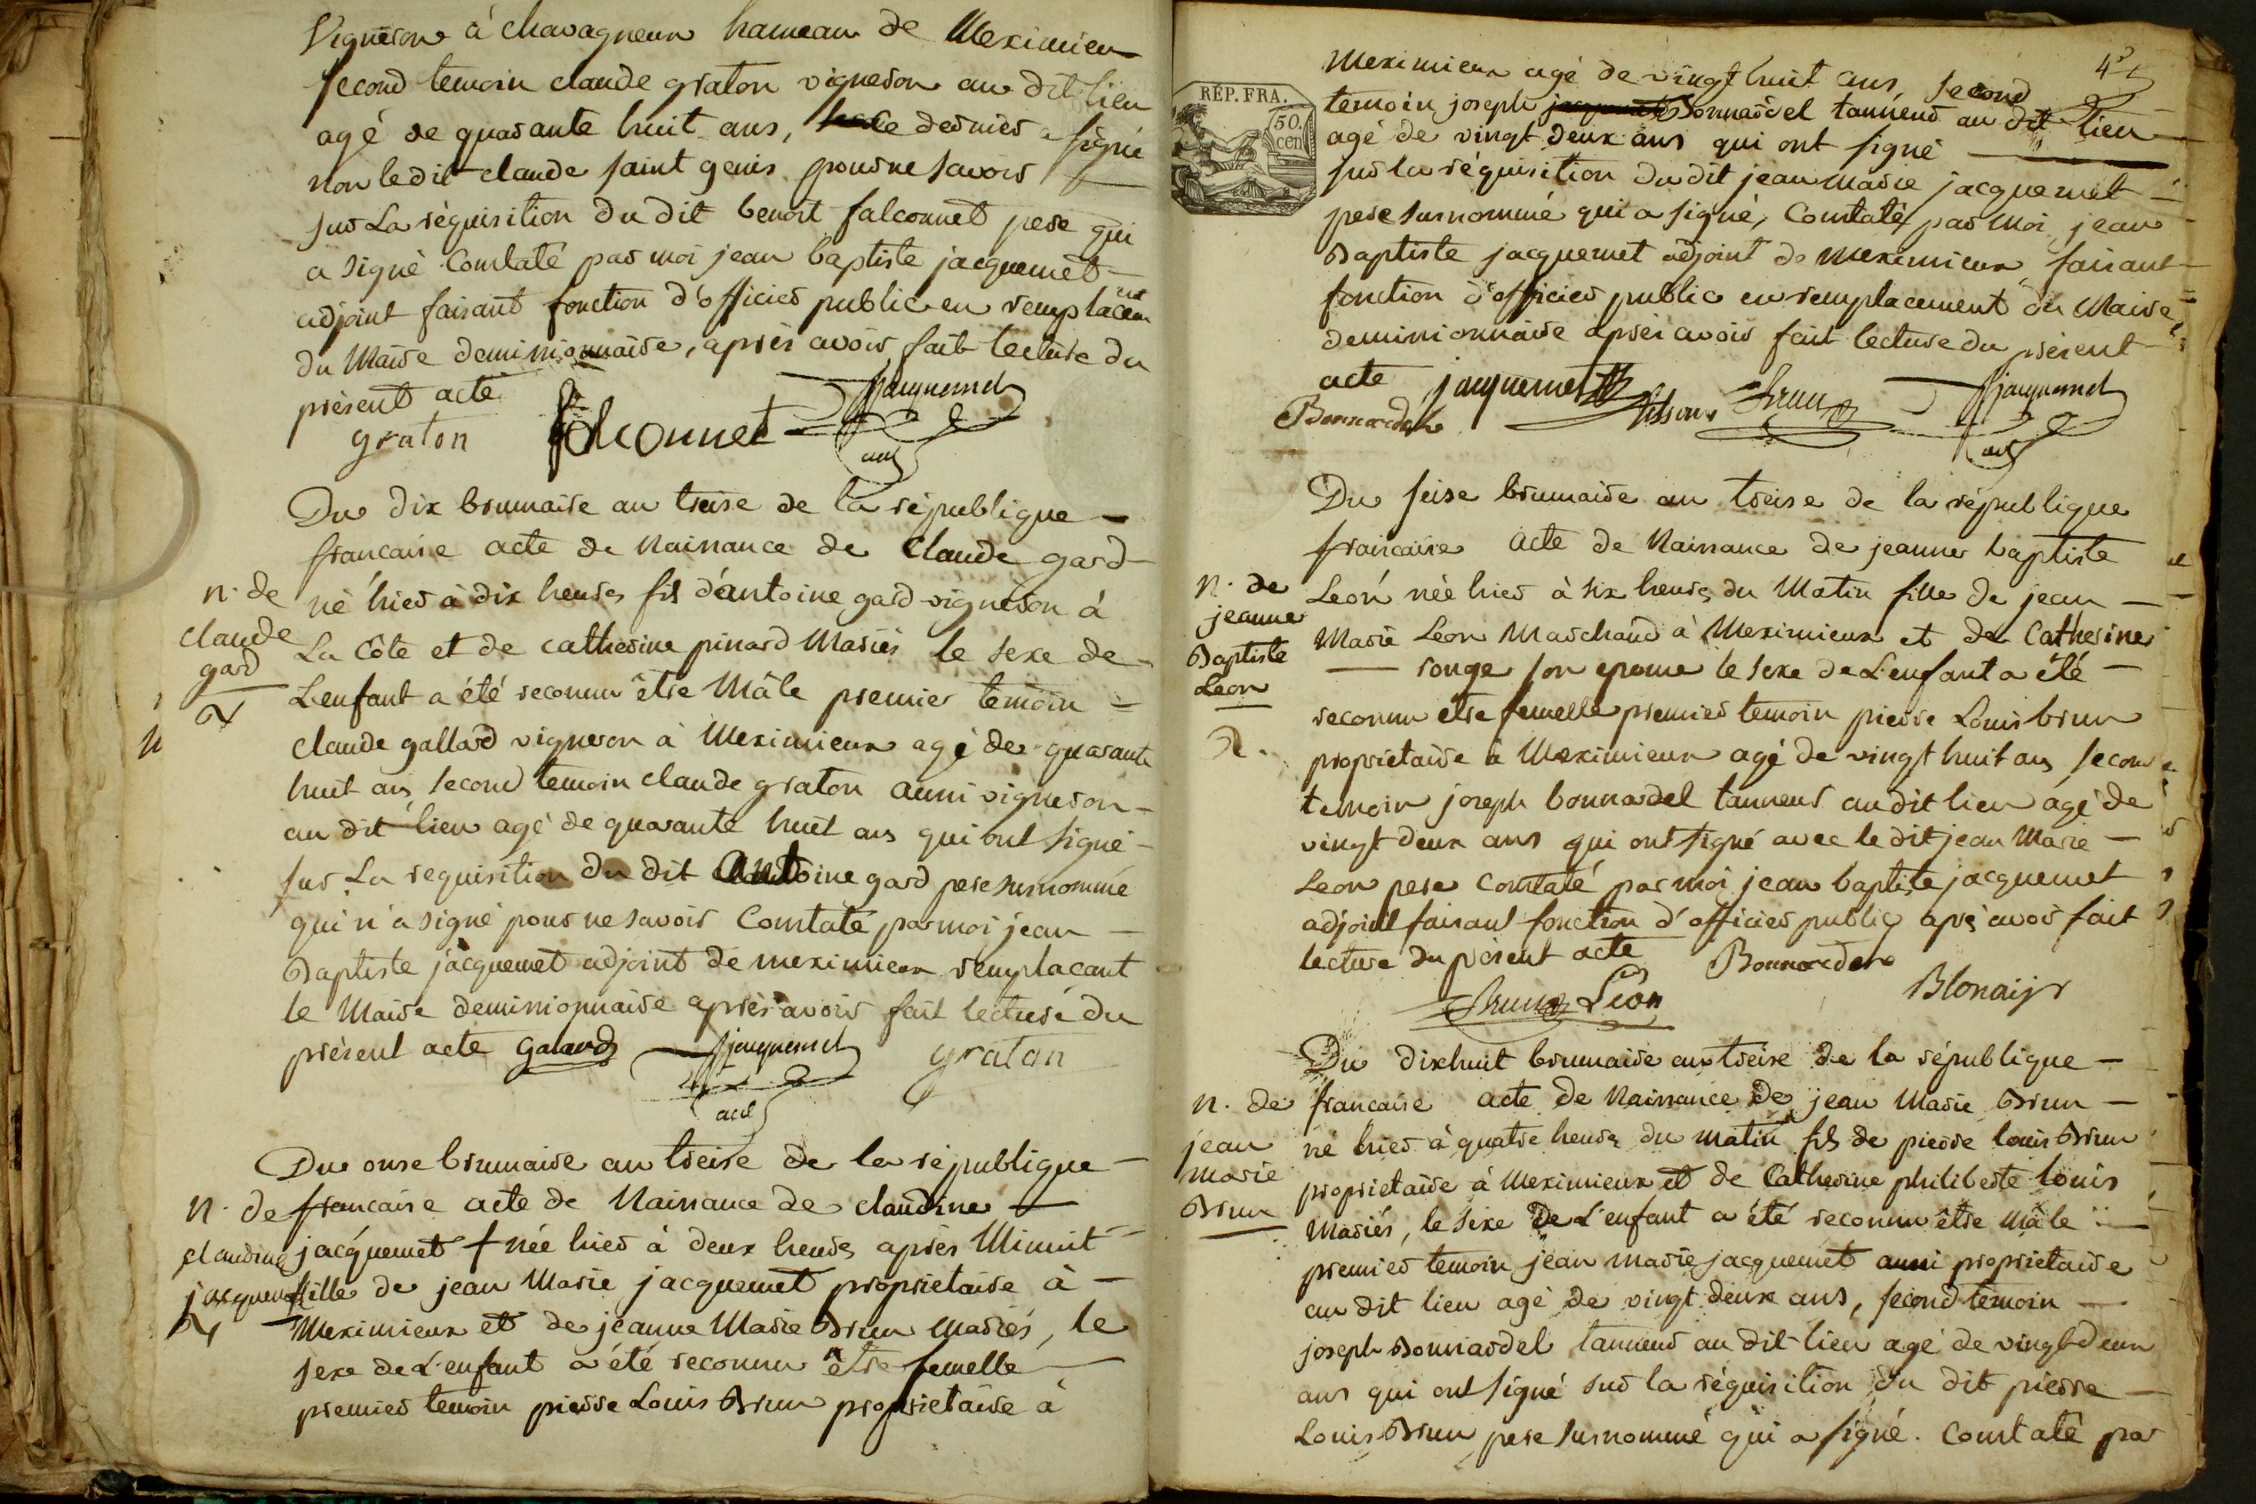 Vigneron à chavagneux hameau de Meximieu
second temoin claude graton vigneron au dit lieu
agé de quarante huit ans, ce dernier a signé
non le dit claude saint genis pour ne savoir
sur La réquisition du dit benoit falconnet pere qui
a signé Constaté par moi jean baptiste jacquemet
adjoint faisant fonction d'officier public en remplacem
du Maire demissionnaire, après avoir fait lecture du
présent acte
jacquemet
graton falconnet
adj
Du dix brumaire an treise de la république
francaise acte de Naissance de Claude gard
né hier à dix heures fils d'antoine gard vigneron à
La Côte et de catherine pinard Mariés le sexe de
L'enfant a été reconnu être Mâle premier temoin
claude gallard vigneron à Meximieux agé de quarante
huit ans second temoin claude graton aussi vigneron
au dit lieu agé de quarante huit ans qui ont signé
sur La requisition du dit Antoine gard pere susnommé
qui n'a signé pour ne savoir Constaté par moi jean
Baptiste jacquemet adjoint de meximieux remplacant
le Maire demissionnaire après avoir fait lecture du
présent acte galard jacquemet graton
adj
n. de
claude
gard
Du onse brumaire an treise de la république
francaise acte de Naissance de claudine
jacquemet née hier à deux heures après Minuit
fille de jean Marie jacquemet propriétaire à
Meximieux et de jeanne Marie Brun Mariés, le
sexe de L'enfant a été reconnu être femelle
premier temoin pierre Louis Brun propriétaire à
n. de
claudine
jacquemet
RÉP. FRA.
50.
cen
Meximieux agé de vingt huit ans, second
temoin joseph Bonnardel tanneur au dit lieu
agé de vingt deux ans qui ont signé
sur la réquisition du dit jean marie jacquemet
pere susnommé qui a signé, Constaté par Moi jean
Baptiste jacquemet adjoint de Meximieux faisant
fonction d'officier public en remplacement du Maire
demissionnaire après avoir fait lecture du présent
acte jacquemet Brun jacquemet
Bonnardel
adj
Du seise brumaire an treise de la république
francaise acte de Naissance de jeanne baptiste
Leon née hier à six heures du Matin fille de jean
Marie Leon Marchand à Meximieux et de Catherine
ronge son epouse le sexe de L'enfant a été
reconnu etre femelle premier temoin pierre Louis brun
proprietaire à Meximieux agé de vingt huit ans second
temoin joseph bonnardel tanneur au dit lieu agé de
vingt deux ans qui ont signé avec le dit jean Marie
Leon pere Constaté par moi jean baptiste jacquemet
adjoint faisant fonction d'officier public après avoir fait
lecture du présent acte Bonnardel
Brun Léon Blonaijr
n. de
jeanne
Baptiste
Leon
Du dixhuit brumaire an treise de la république
francaise acte de Naissance de jean Marie Brun
né hier à quatre heures du matin fils de pierre louis Brun
proprietaire à Meximieux et de Catherine philiberte louis
Mariés, le sexe de L'enfant a été reconnu être Mâle
premier temoin jean marie jacquemet aussi proprietaire
au dit lieu agé de vingt deux ans, second temoin
joseph Bonnardel tanneur au dit lieu agé de vingt deux
ans qui ont signé sur la réquisition du dit pierre
Louis Brun pere susnommé qui a signé. Constaté par
n. de
jean
marie
Brun